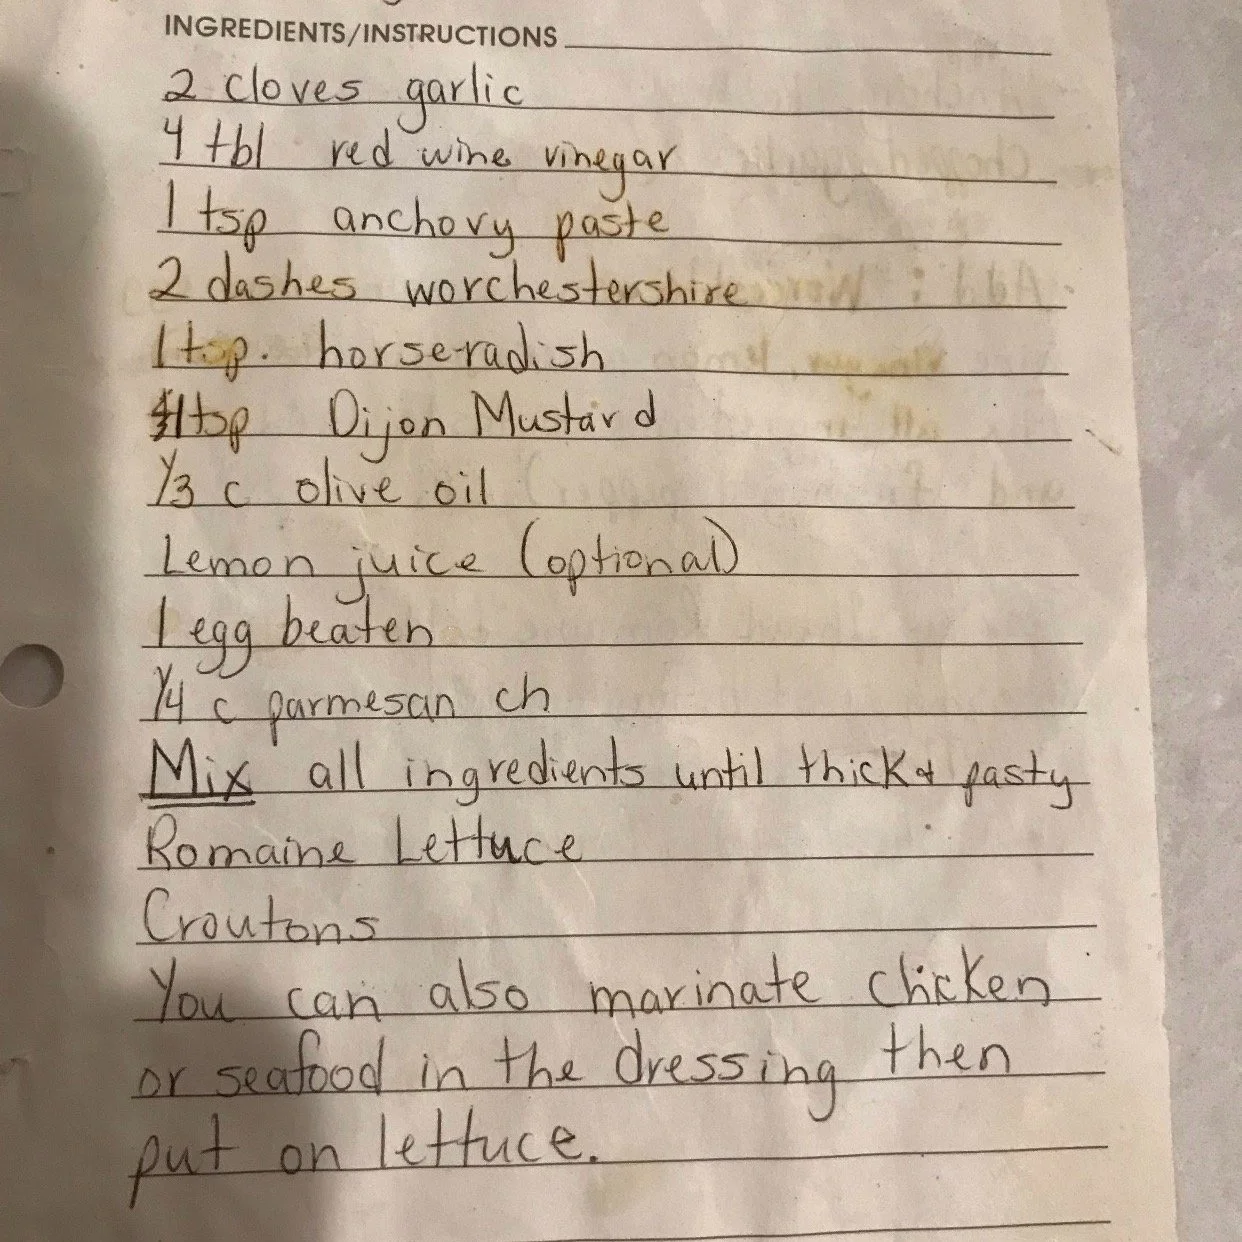 INGREDIENTS/INSTRUCTIONS
2 cloves garlic
4 tbl red wine vinegar
1 tsp anchovy paste
2 dashes worchestershire
1 tsp. horseradish
1 tsp Dijon Mustard
1/3 c olive oil
Lemon juice (optional)
1 egg beaten
1/4 c parmesan ch
Mix all ingredients until thick & pasty
Romaine Lettuce
Croutons
You can also marinate chicken
or seafood in the dressing then
put on lettuce.